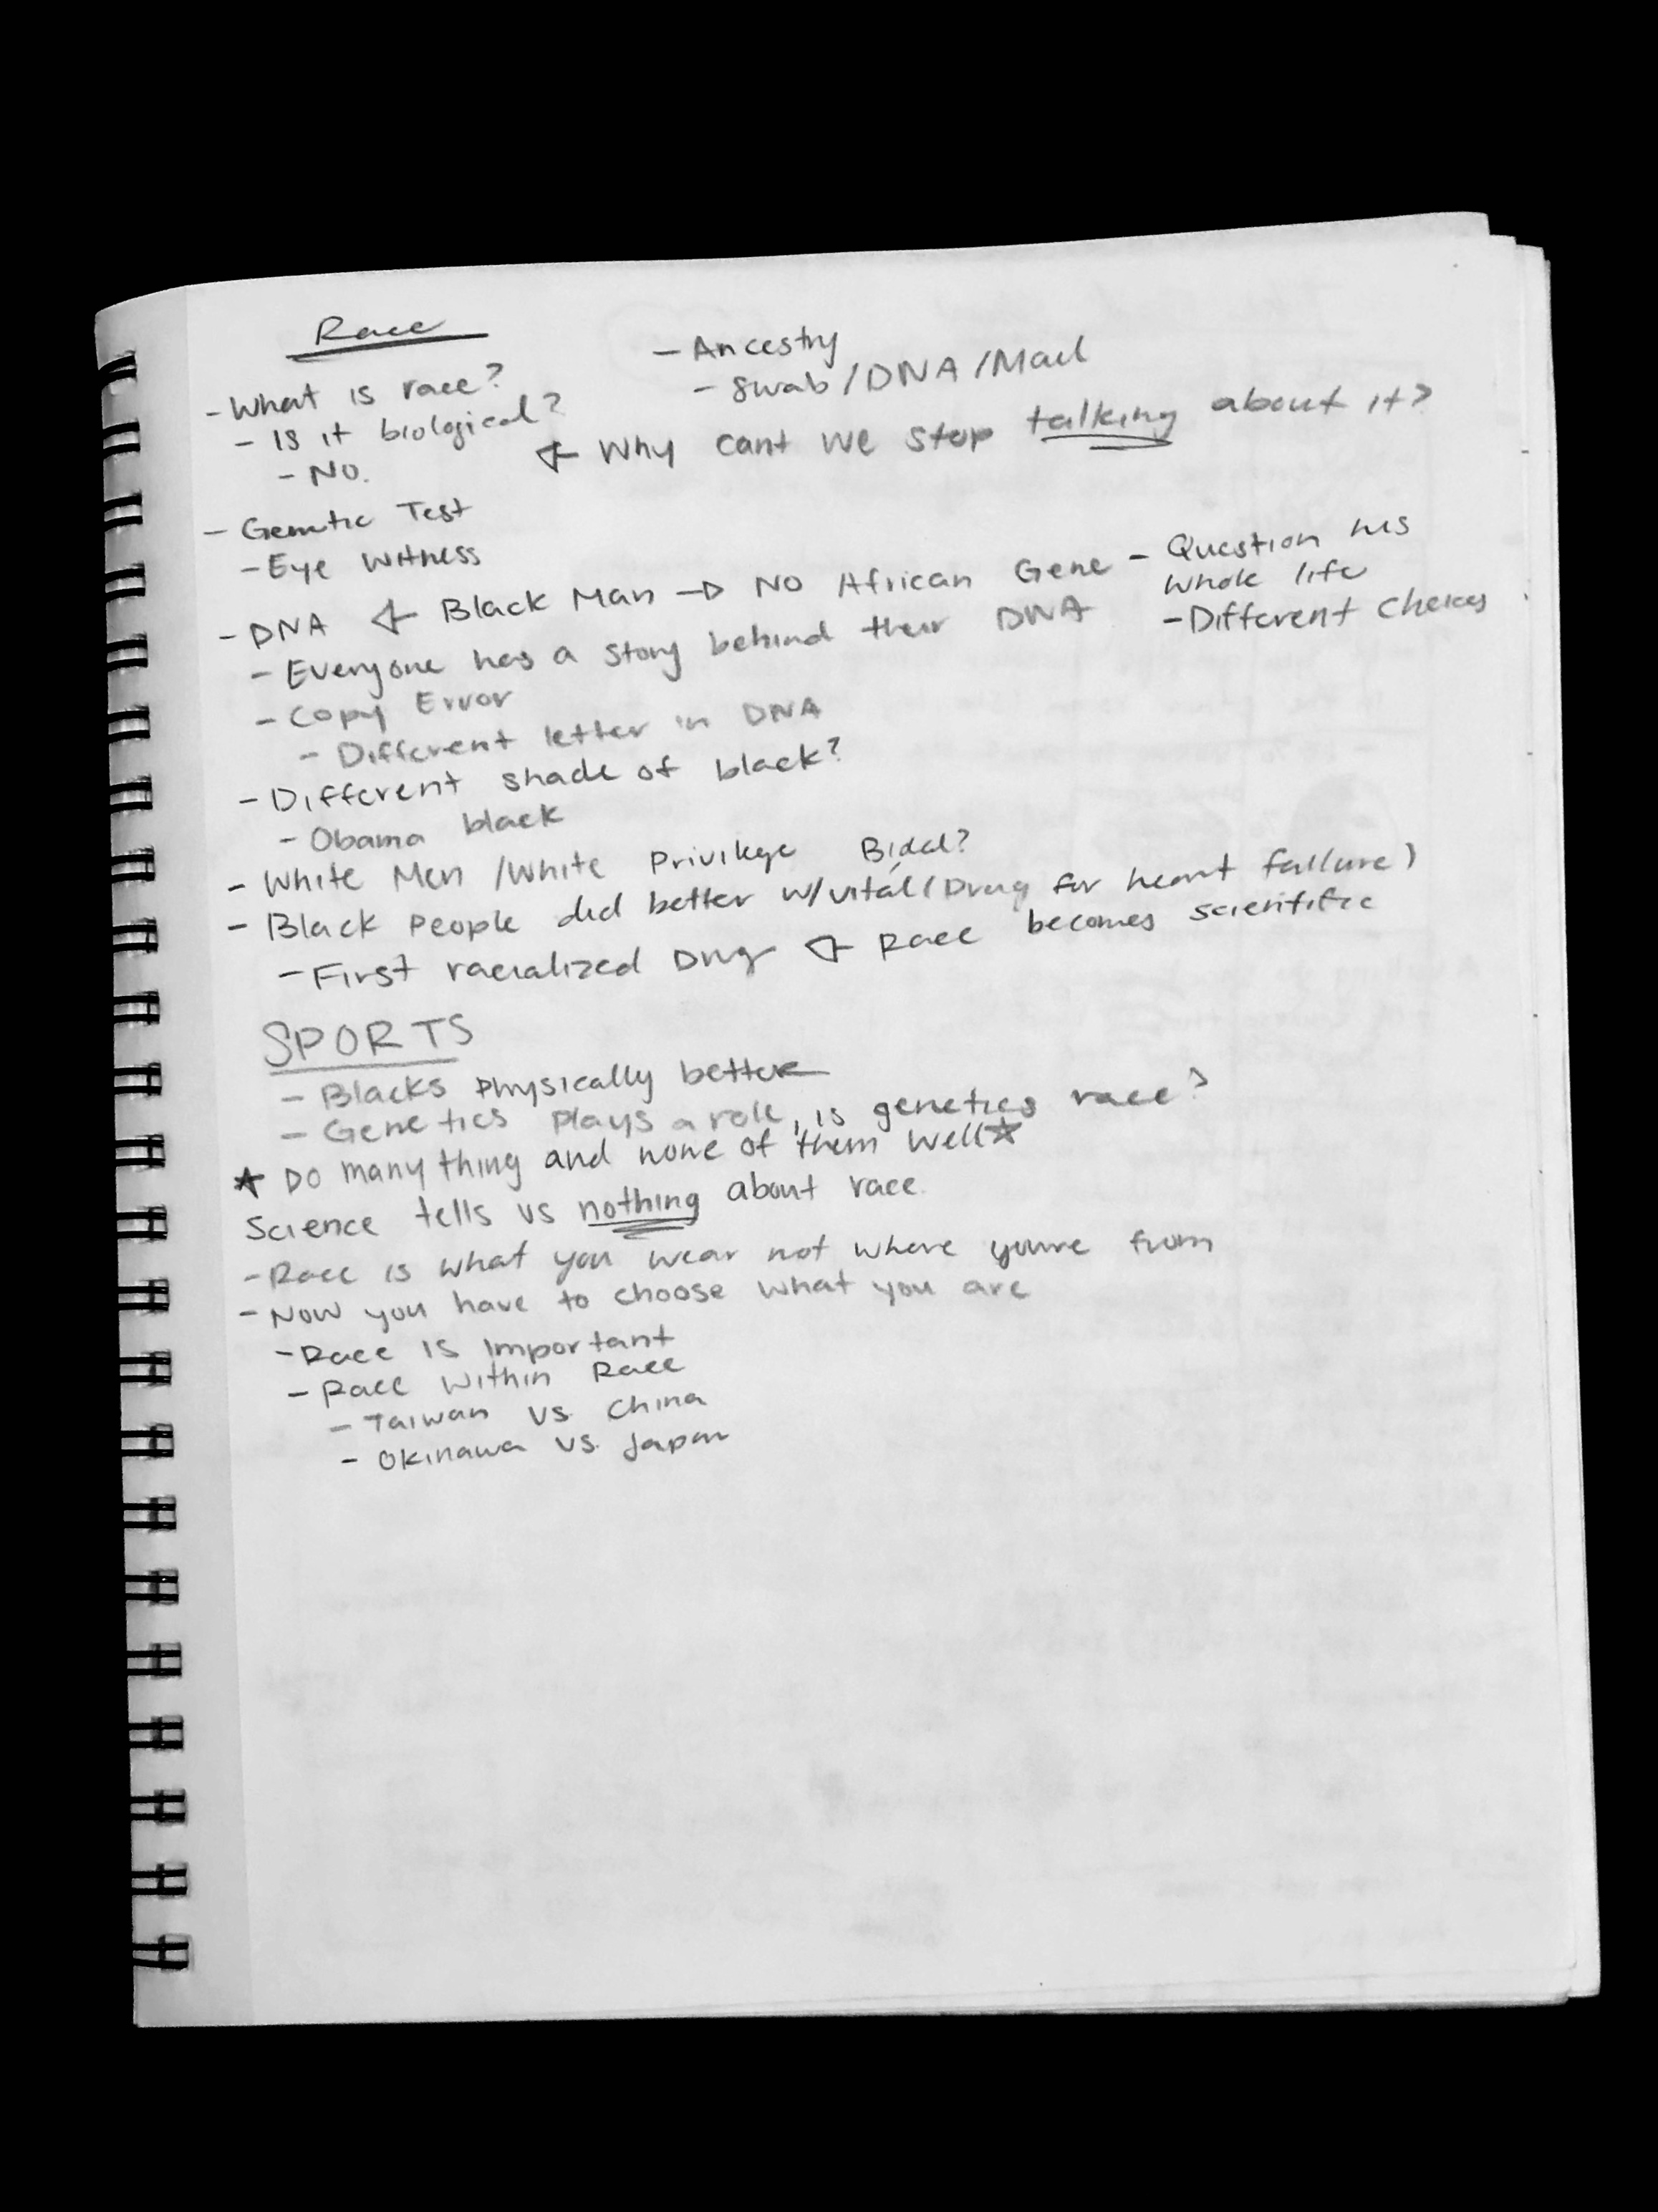 Race
- What is race?
- Is it biological?
- No.
- Ancestry
- Swab/DNA/Mail
← Why cant we stop talking about it?
- Genetic Test
- Eye Witness
- DNA ← Black Man → NO African Gene - Question his
whole life
- Different Choices
- Everyone has a story behind their DNA
- Copy Error
- Different letter in DNA
- Different shade of black?
- Obama black
- White Men /White Privilege
- Black People did better w/ (Drug for heart failure)
- First racialized Drug ← Race becomes scientific
SPORTS
- Blacks Physically better
- Genetics Plays a role, is genetics race?
★ Do many thing and none of them well ★
Science tells us nothing about race.
- Race is what you wear not where youre from
- Now you have to choose what you are
- Race is important
- Race within Race
- Taiwan vs. China
- Okinawa vs. Japan